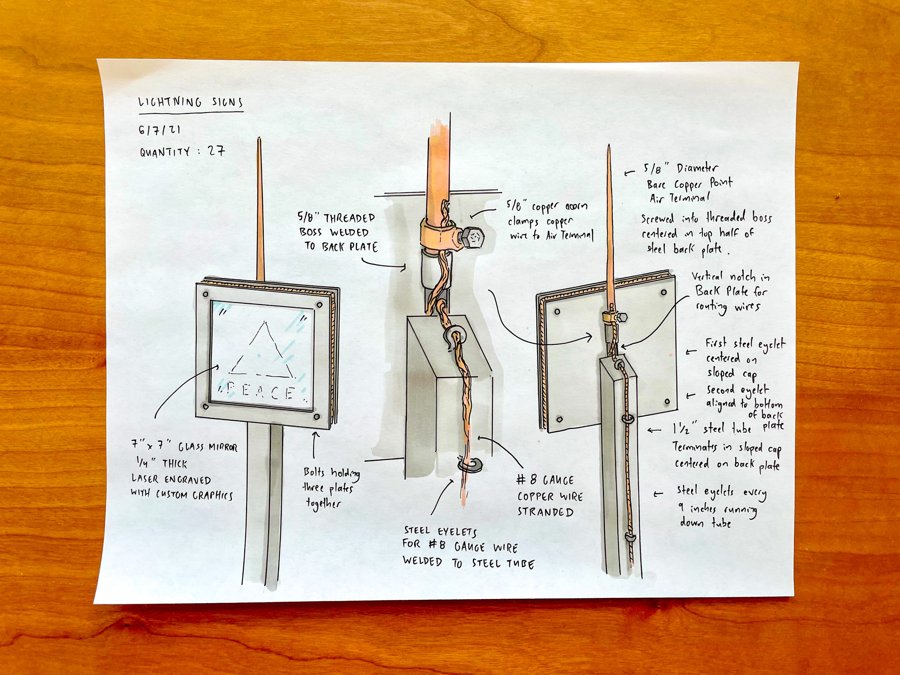 LIGHTNING SIGNS
6/7/21
QUANTITY : 27
5/8" THREADED
BOSS WELDED
TO BACK PLATE
5/8" copper acorn
clamps copper
wire to Air Terminal
5/8" Diameter
Bare Copper Point
Air Terminal
Screwed into threaded boss
centered on top half of
steel back plate.
Vertical notch in
Back Plate for
routing wires
First steel eyelet
centered on
sloped cap
Second eyelet
aligned to bottom
of back
plate
1 1/2" steel tube
Terminates in sloped cap
centered on back plate
Steel eyelets every
9 inches running
down tube
PEACE
7" x 7" GLASS MIRROR
1/4" THICK
LASER ENGRAVED
WITH CUSTOM GRAPHICS
Bolts holding
three plates
together
STEEL EYELETS
FOR #8 GAUGE WIRE
WELDED TO STEEL TUBE
#8 GAUGE
COPPER WIRE
STRANDED